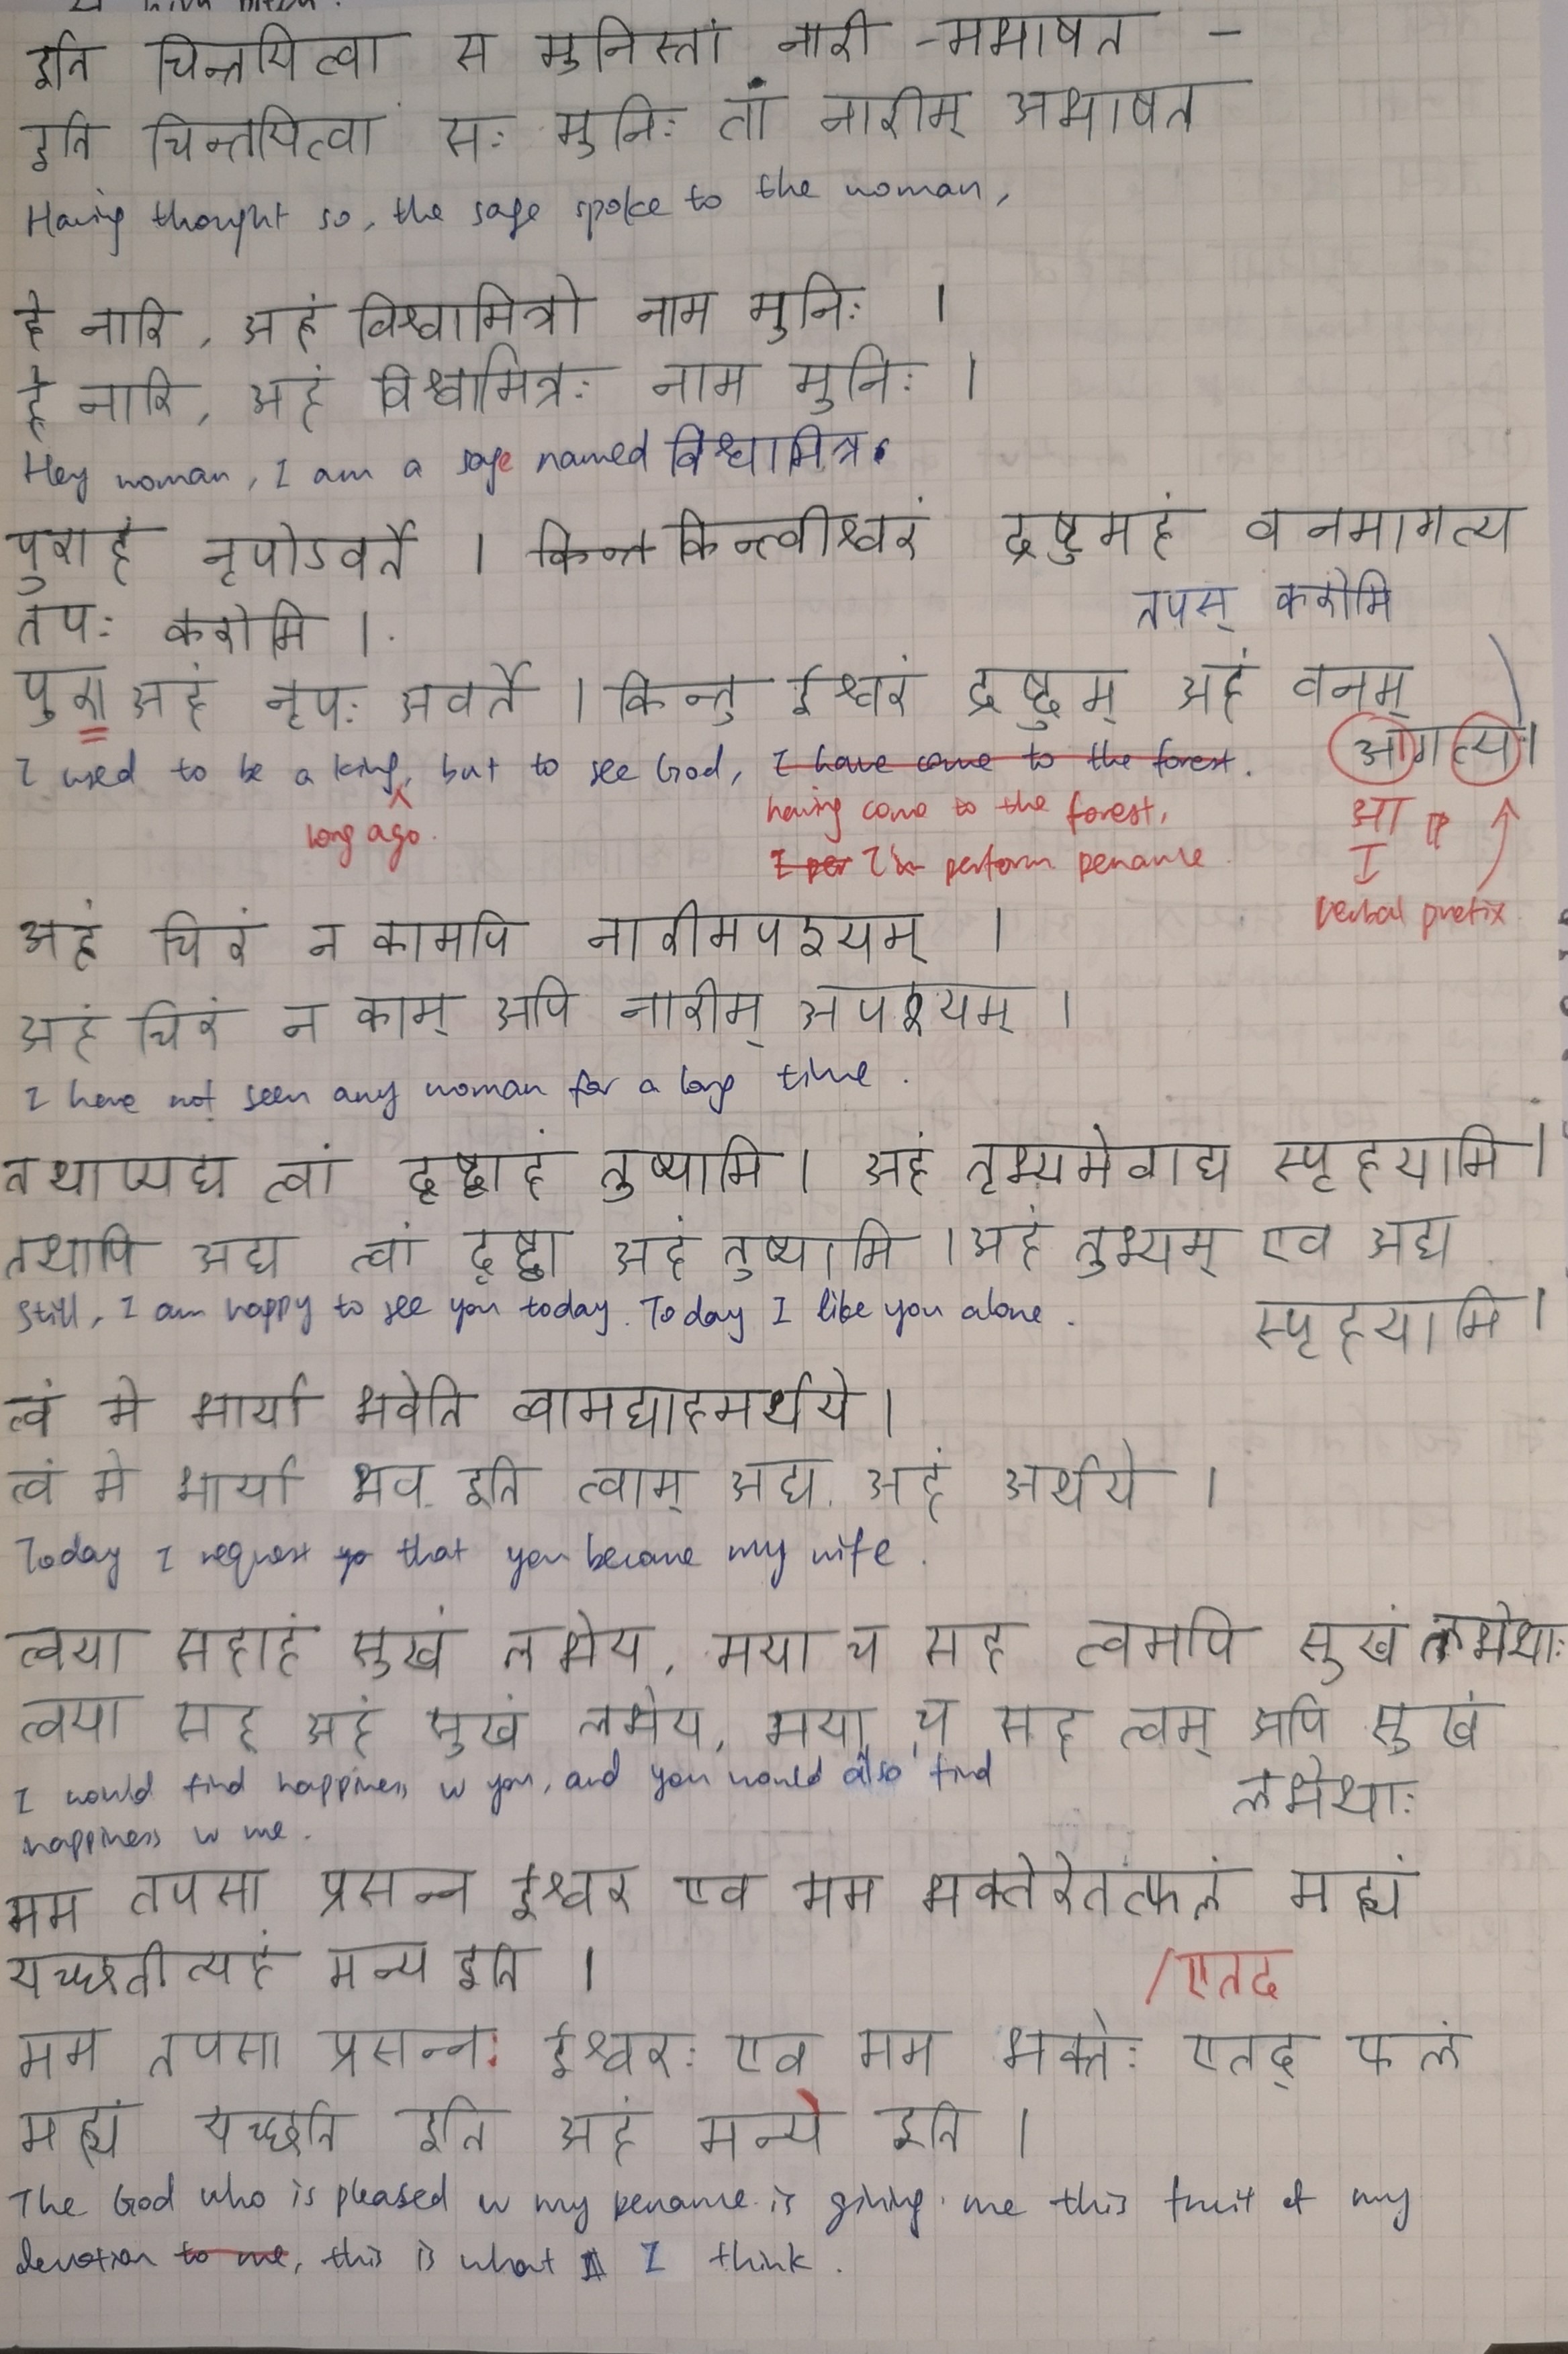 इति चिन्तयित्वा स मुनिस्तां नारी -मभाषत -
इति चिन्तयित्वा सः मुनिः तां नारीम् अभाषत
Having thought so, the sage spoke to the woman,
हे नारि, अहं विश्वामित्रो नाम मुनिः ।
हे नारि, अहं विश्वामित्रः नाम मुनिः ।
Hey woman, I am a sage named विश्वामित्र.
पुराहं नृपोऽवर्ते । किन्त किन्त्वीश्वरं द्रष्टुमहं वनमागत्य
तपः करोमि ।
तपस् करोमि
पुरा अहं नृपः अवर्ते । किन्तु ईश्वरं द्रष्टुम् अहं वनम्
आगत्य ।
I used to be a king, but to see God, I have come to the forest.
long ago.
having come to the forest,
I per I perform penance
आ
verbal prefix
अहं चिरं न कामपि नारीमपश्यम् ।
अहं चिरं न काम् अपि नारीम् अपश्यम् ।
I have not seen any woman for a long time.
तथाप्यद्य त्वां दृष्ट्वाहं तुष्यामि । अहं तृभ्यमेवाद्य स्पृहयामि ।
तथापि अद्य त्वां दृष्ट्वा अहं तुष्यामि । अहं तुभ्यम् एव अद्य
स्पृहयामि ।
Still, I am happy to see you today. Today I like you alone.
त्वं मे भार्या भवेति त्वामद्याहमर्थये ।
त्वं मे भार्या भव इति त्वाम् अद्य अहं अर्थये ।
Today I request yo that you become my wife.
त्वया सहाहं सुखं लभेय, मया च सह त्वमपि सुखं लभेथाः
त्वया सह अहं सुखं लभेय, मया च सह त्वम् अपि सुखं
लभेथाः
I would find happiness w you, and you would also find
happiness w me.
मम तपसा प्रसन्न ईश्वर एव मम भक्तेरेतत्फलं मह्यं
यच्छतीत्यहं मन्य इति ।
/एतद
मम तपसा प्रसन्नः ईश्वरः एव मम भक्तेः एतद् फलं
मह्यं यच्छति इति अहं मन्ये इति ।
The God who is pleased w my penance is giving me this fruit of my
devotion to me, this is what I think.